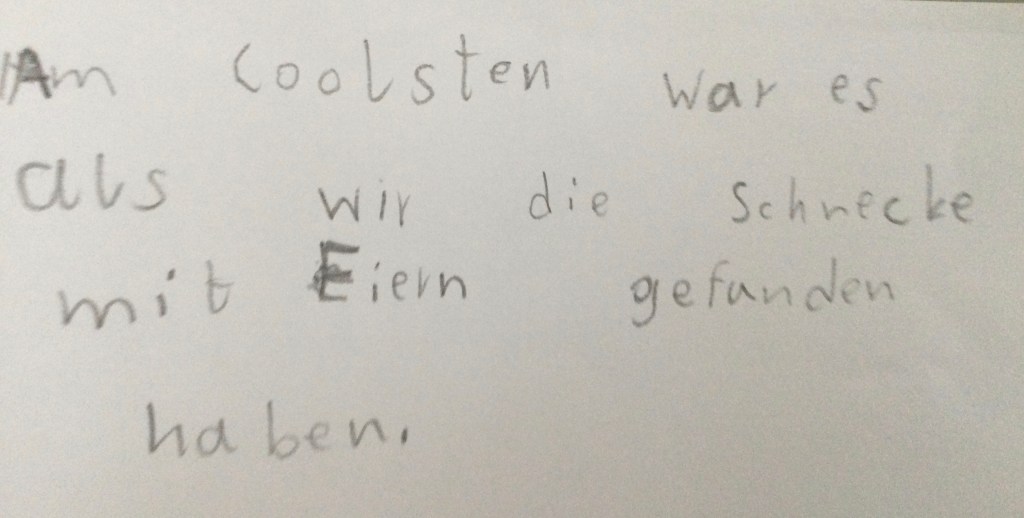 Am coolsten war es
als wir die Schnecke
mit Eiern gefunden
haben.